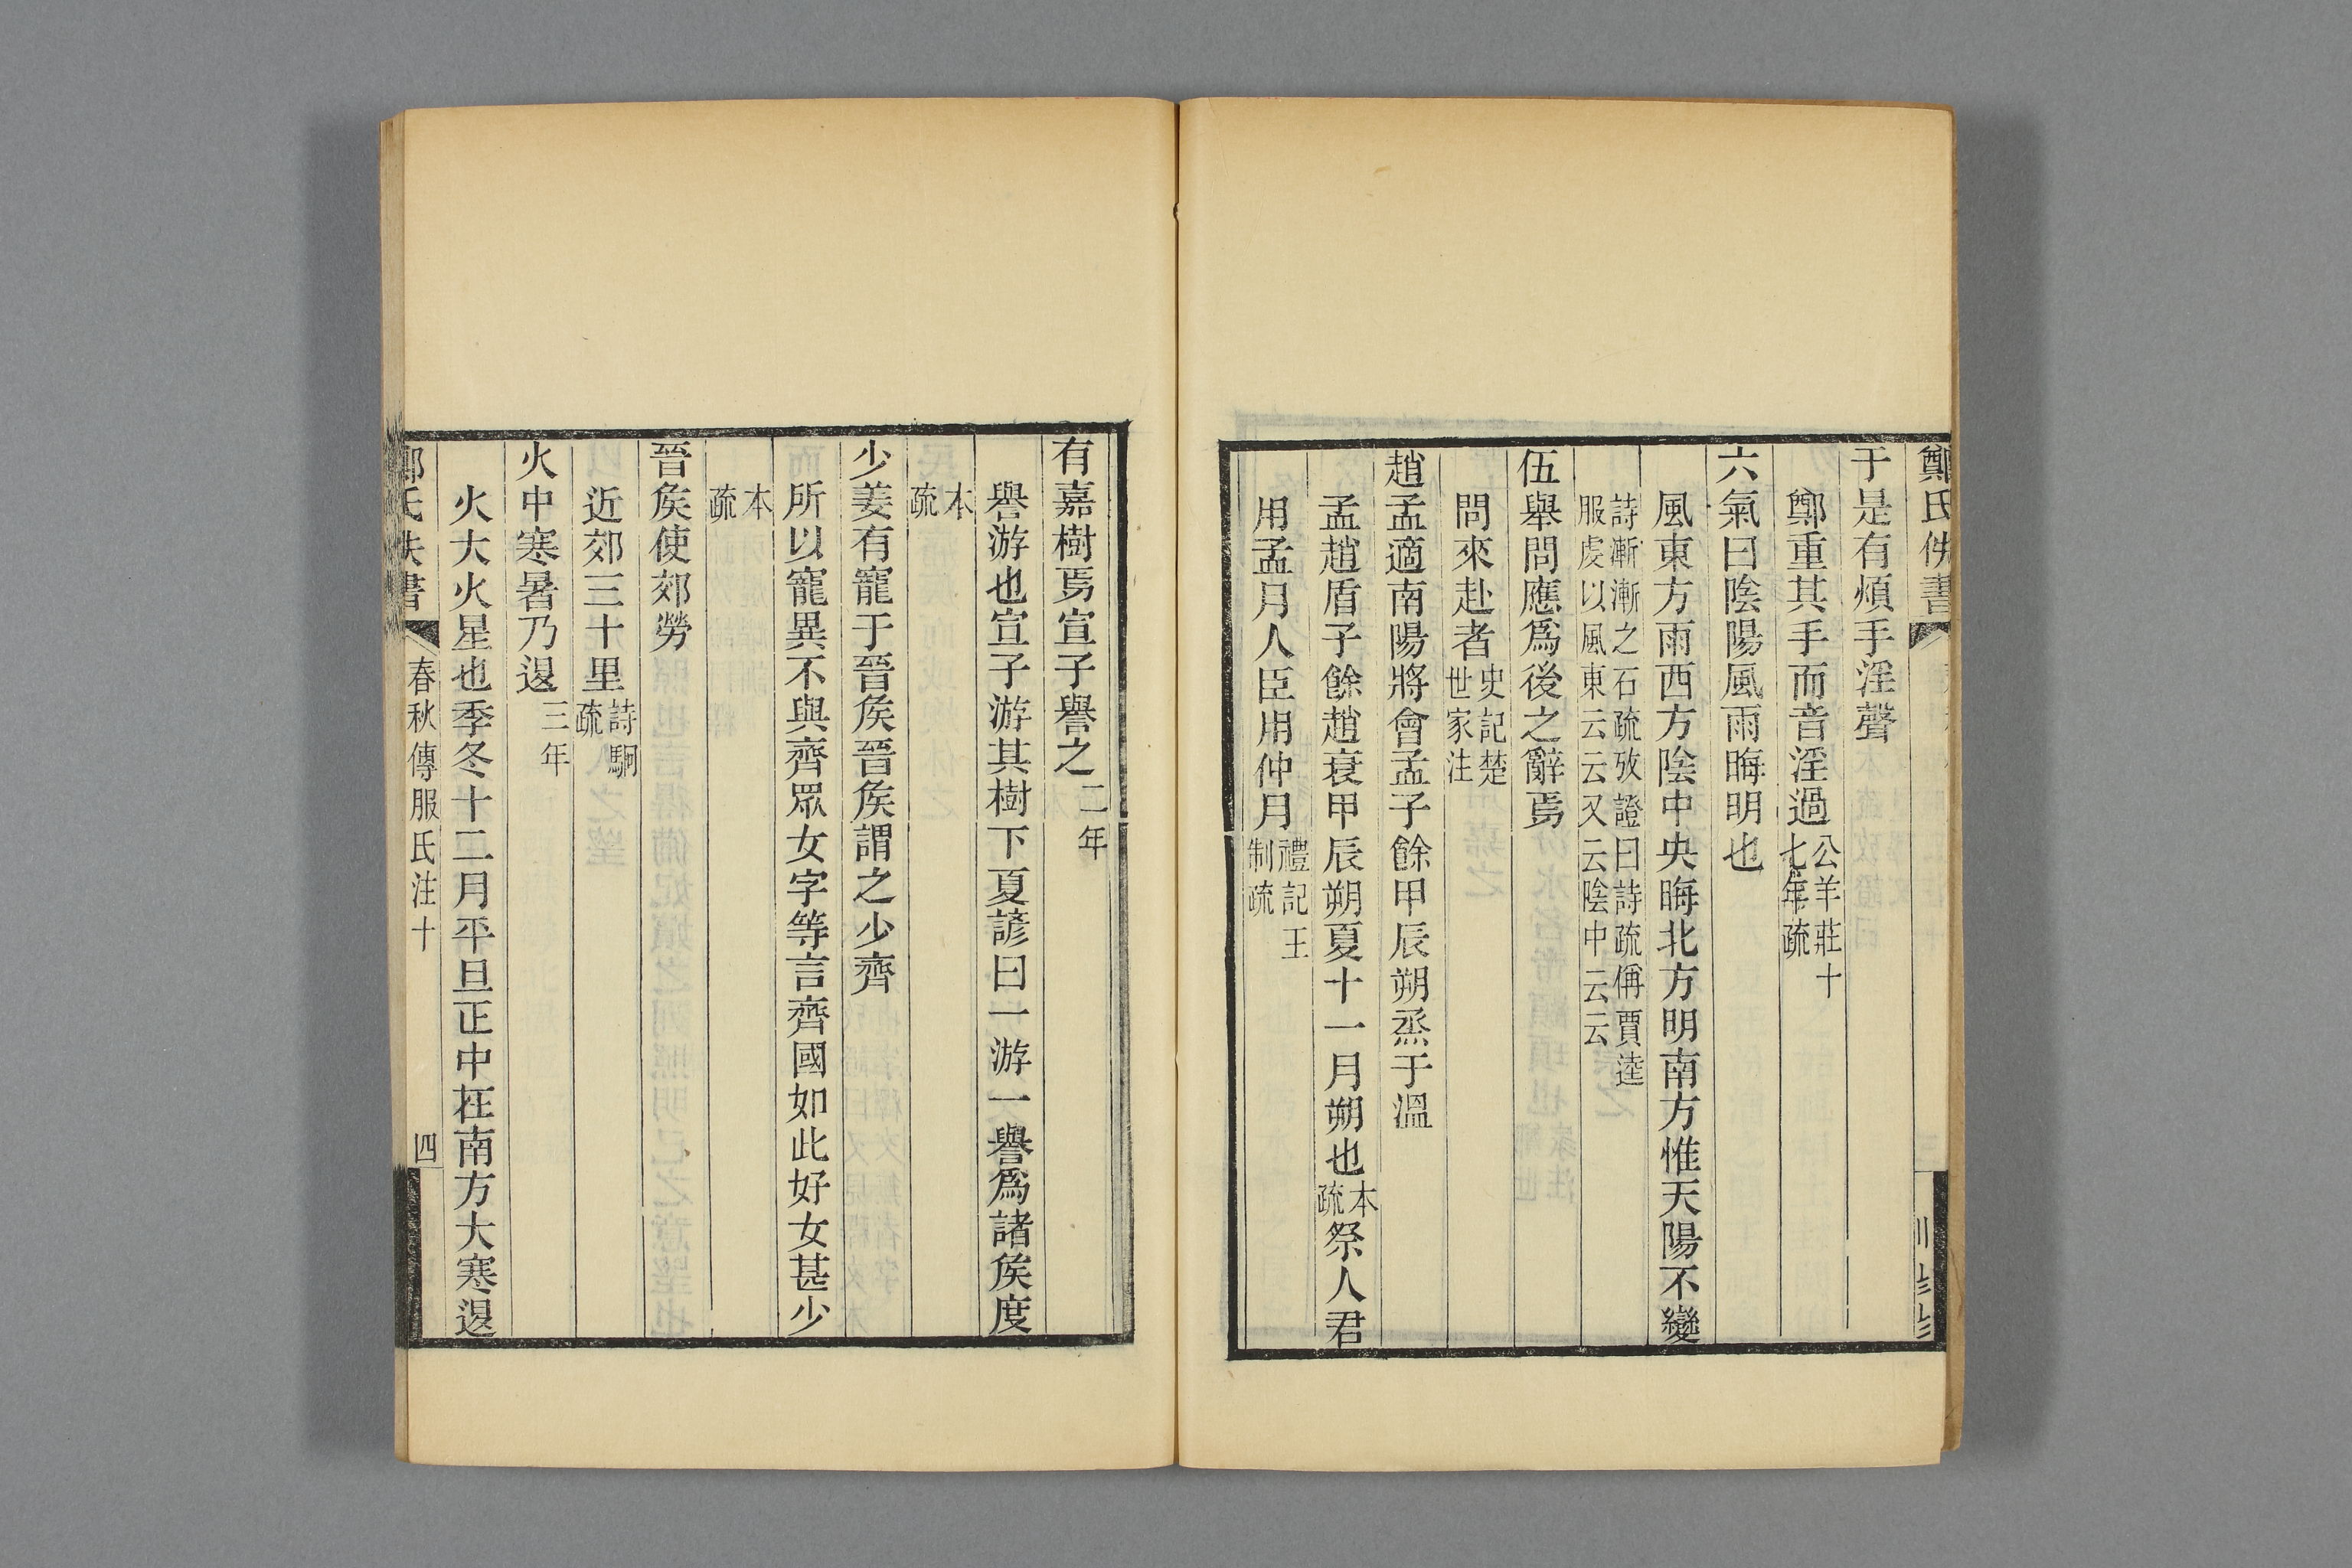 鄭氏佚書
于是有煩手淫聲
鄭重其手而音淫過公羊莊十七年疏
六氣曰陰陽風雨晦明也
風東方雨西方陰中央晦北方明南方惟天陽不變
詩漸漸之石疏攷證曰詩疏偁賈逵
服虔以風東云云又云陰中云云
伍舉問應爲後之辭焉
問來赴者史記楚世家注
趙孟適南陽將會孟子餘甲辰朔烝于溫
孟趙盾子餘趙衰甲辰朔夏十一月朔也本疏祭人君
用孟月人臣用仲月禮記王制疏
有嘉樹焉宣子譽之二年
譽游也宣子游其樹下夏諺曰一游一譽爲諸矦度
本疏
少姜有寵于晉矦晉矦謂之少齊
所以寵異不與齊眾女字等言齊國如此好女甚少
本疏
晉矦使郊勞
近郊三十里詩駉疏
火中寒暑乃退三年
火大火星也季冬十二月平旦正中在南方大寒退
鄭氏佚書
春秋傳服氏注十
四